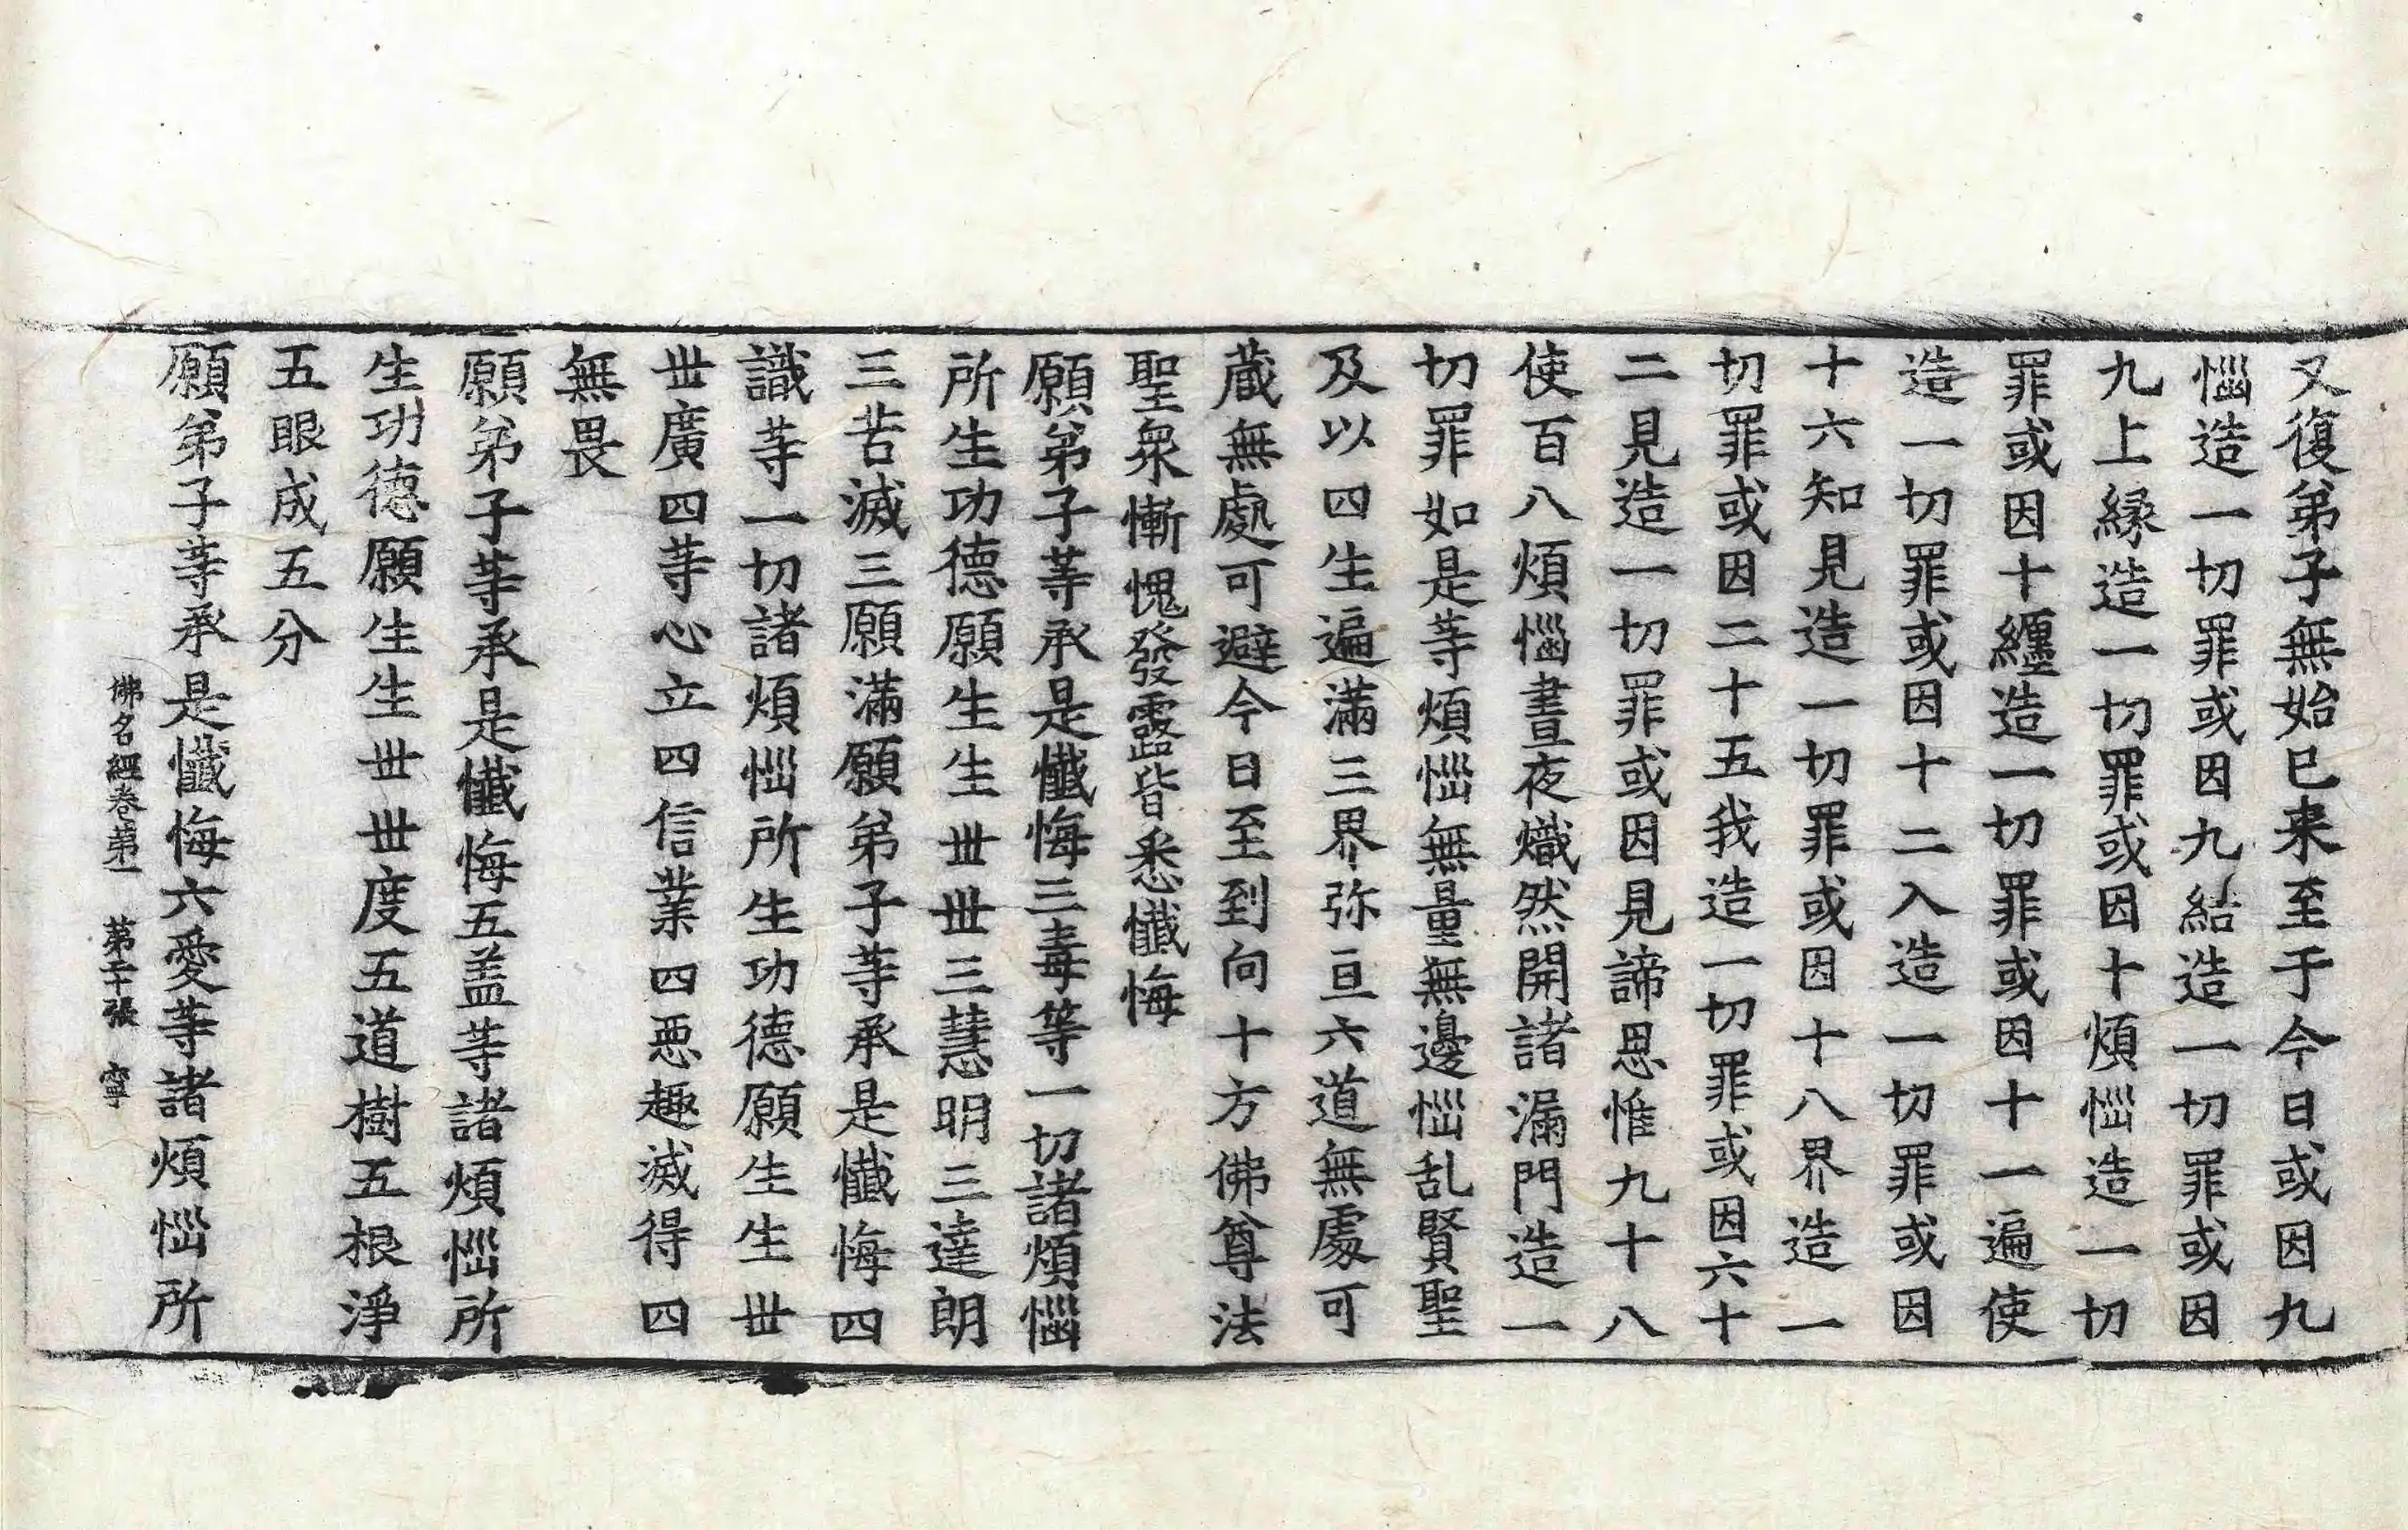 又復弟子無始已来至于今日或因九
惱造一切罪或因九結造一切罪或因
九上縁造一切罪或因十煩惱造一切
罪或因十纏造一切罪或因十一遍使
造一切罪或因十二入造一切罪或因
十六知見造一切罪或因十八界造一
切罪或因二十五我造一切罪或因六十
二見造一切罪或因見諦思惟九十八
使百八煩惱晝夜熾然開諸漏門造一
切罪如是等煩惱無量無邊惱乱賢聖
及以四生遍滿三界弥亘六道無處可
蔵無處可避今日至到向十方佛尊法
聖衆慚愧發露皆悉懺悔
願弟子等承是懺悔三毒等一切諸煩惱
所生功德願生生丗丗三慧明三達朗
三苦滅三願滿願弟子等承是懺悔四
識等一切諸煩惱所生功德願生生丗
丗廣四等心立四信業四惡趣滅得四
無畏
願弟子等承是懺悔五盖等諸煩惱所
生功德願生生丗丗度五道樹五根淨
五眼成五分
願弟子等承是懺悔六愛等諸煩惱所
佛名經卷第一 第二十張 寧